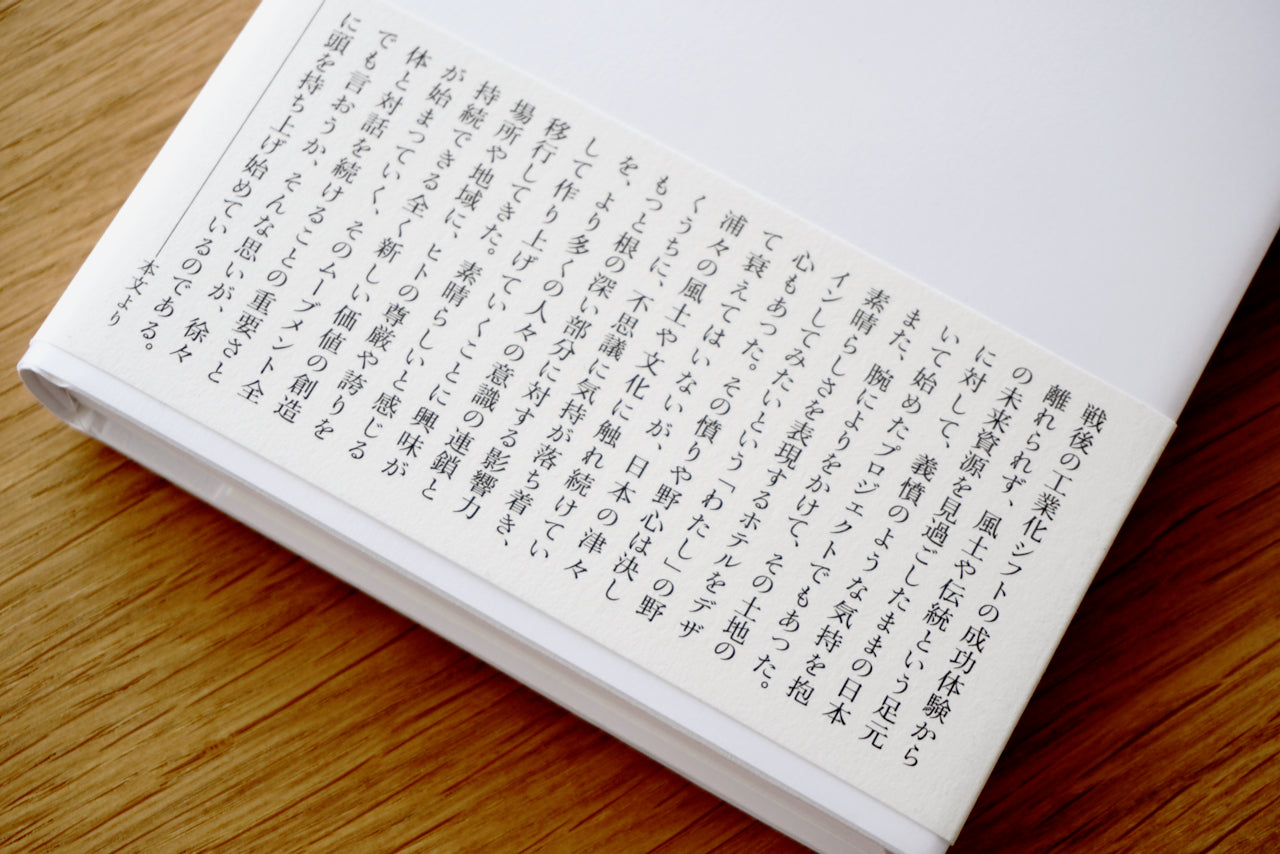 戦後の工業化シフトの成功体験から
離れられず、風土や伝統という足元
の未来資源を見過ごしたままの日本
に対して、義憤のような気持を抱
いて始めたプロジェクトでもあった。
また、腕によりをかけて、その土地の
素晴らしさを表現するホテルをデザ
インしてみたいという「わたし」の野
心もあった。その憤りや野心は決し
て衰えてはいないが、日本の津々
浦々の風土や文化に触れ続けてい
くうちに、不思議に気持が落ち着き、
もっと根の深い部分に対する影響力
を、より多くの人々の意識の連鎖と
して作り上げていくことに興味が
移行してきた。素晴らしいと感じる
場所や地域に、ヒトの尊厳や誇りを
持続できる全く新しい価値の創造
が始まっていく、そのムーブメント全
体と対話を続けることの重要さと
でも言おうか、そんな思いが、徐々
に頭を持ち上げ始めているのである。
本文より